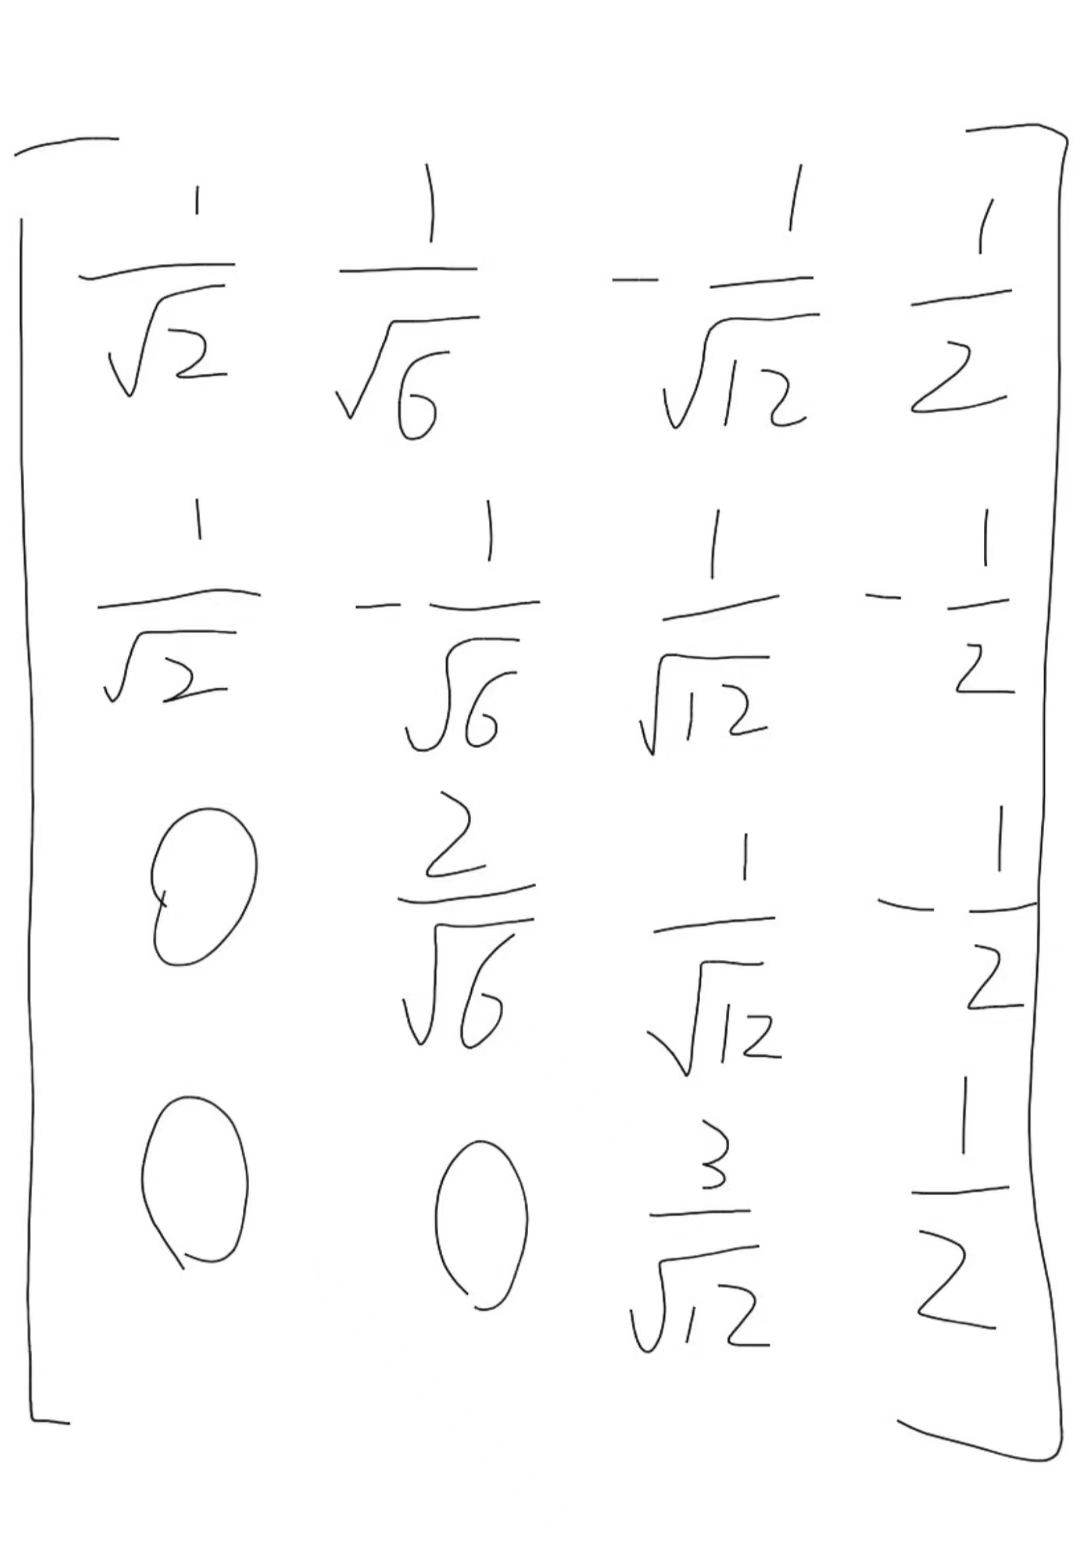 [ 1/√2 1/√6 -1/√12 1/2
1/√2 -1/√6 1/√12 -1/2
0 2/√6 1/√12 -1/2
0 0 3/√12 1/2 ]